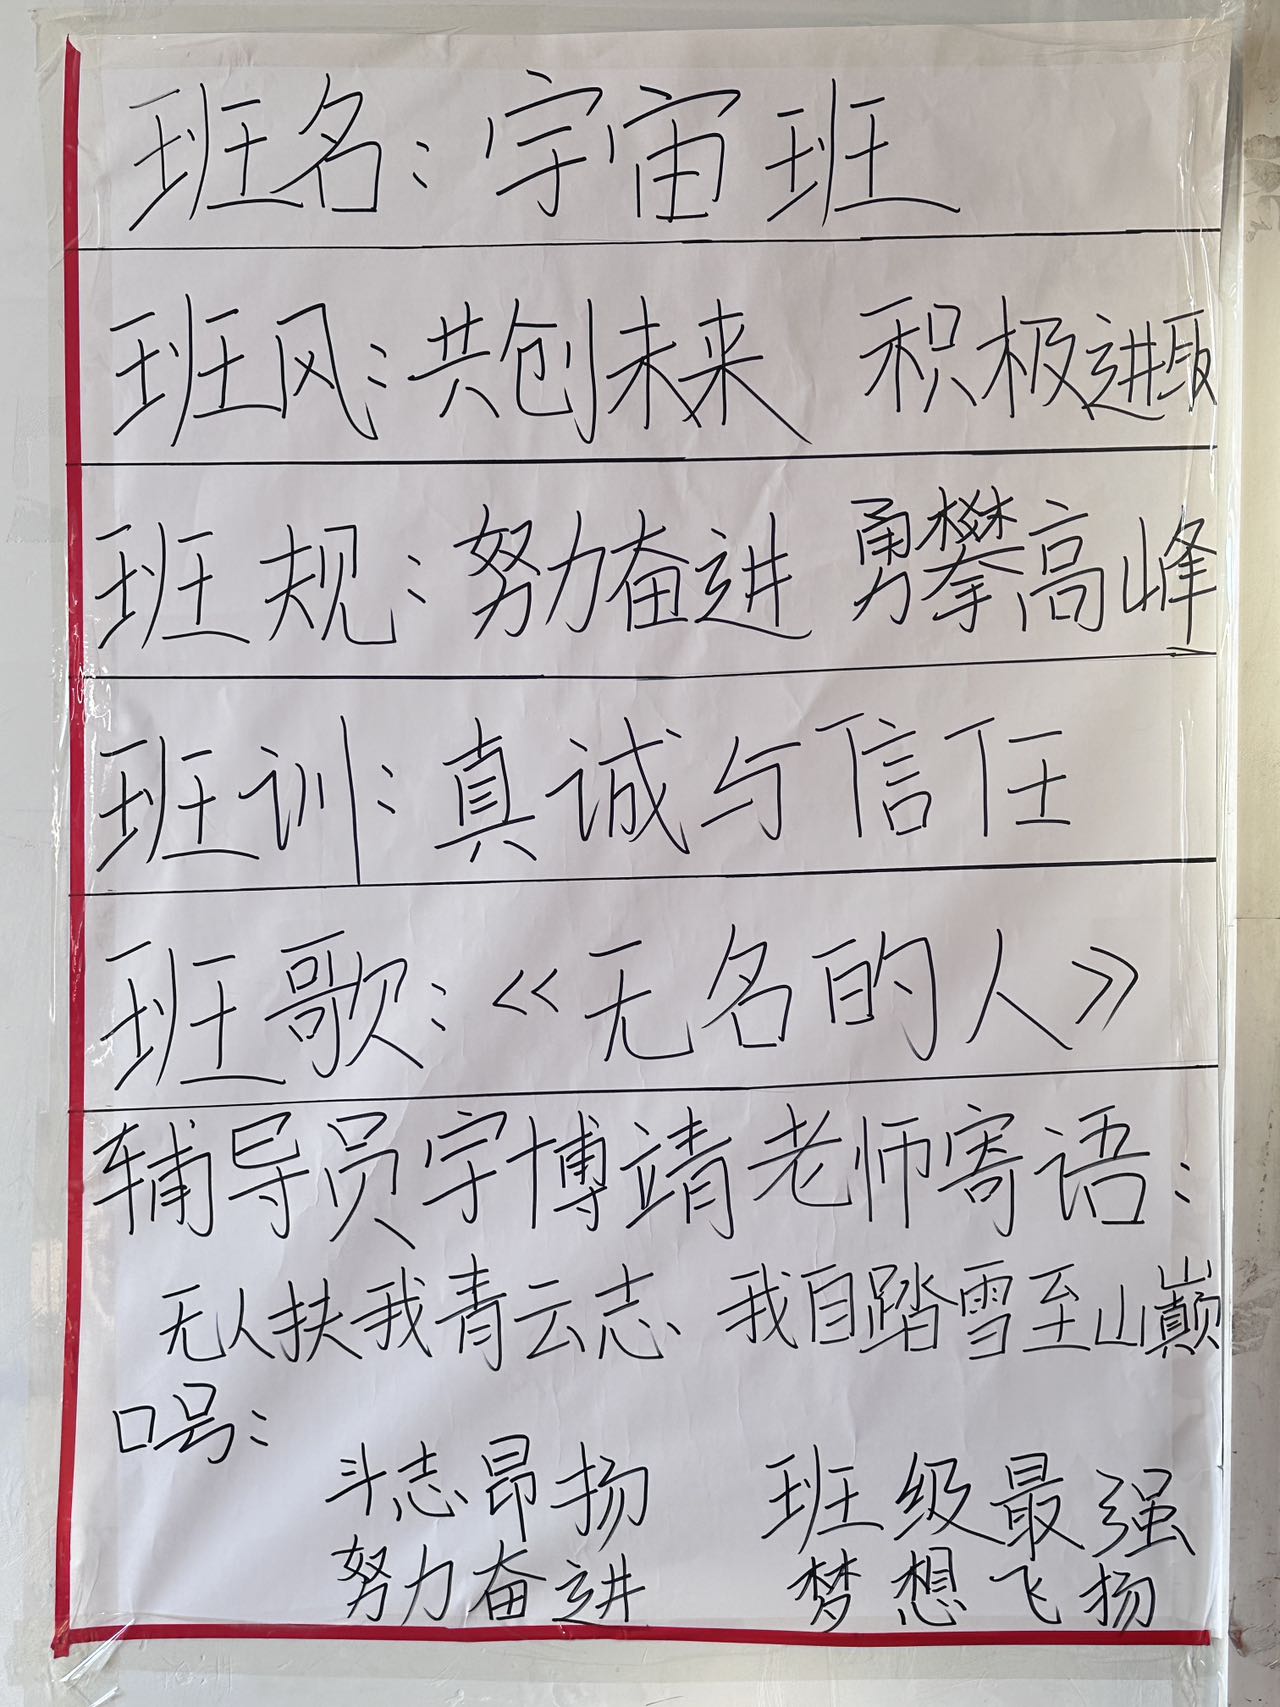 班名：宇宙班
班风：共创未来 积极进取
班规：努力奋进 勇攀高峰
班训：真诚与信任
班歌：《无名的人》
辅导员宇博靖老师寄语：
无人扶我青云志 我自踏雪至山巅
口号：
斗志昂扬 班级最强
努力奋进 梦想飞扬